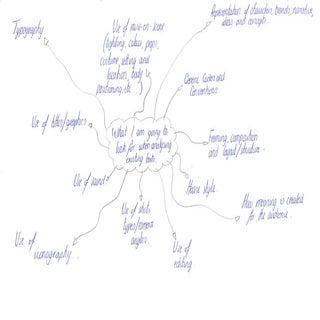 Typography
Use of mise-en-scene
(lighting, colour, props,
costume, setting and
location, body
positioning, etc)
Representation of characters, trends, narrative,
ideas and concepts.
Generic Codes and
Conventions
Use of titles/graphics
What I am going to
look for when analysing
existing texts.
Framing, composition
and layout/structure.
Use of sound
House style.
Use of shot
types/camera
angles.
How meaning is created
for the audience.
Use of
iconography.
Use of
editing